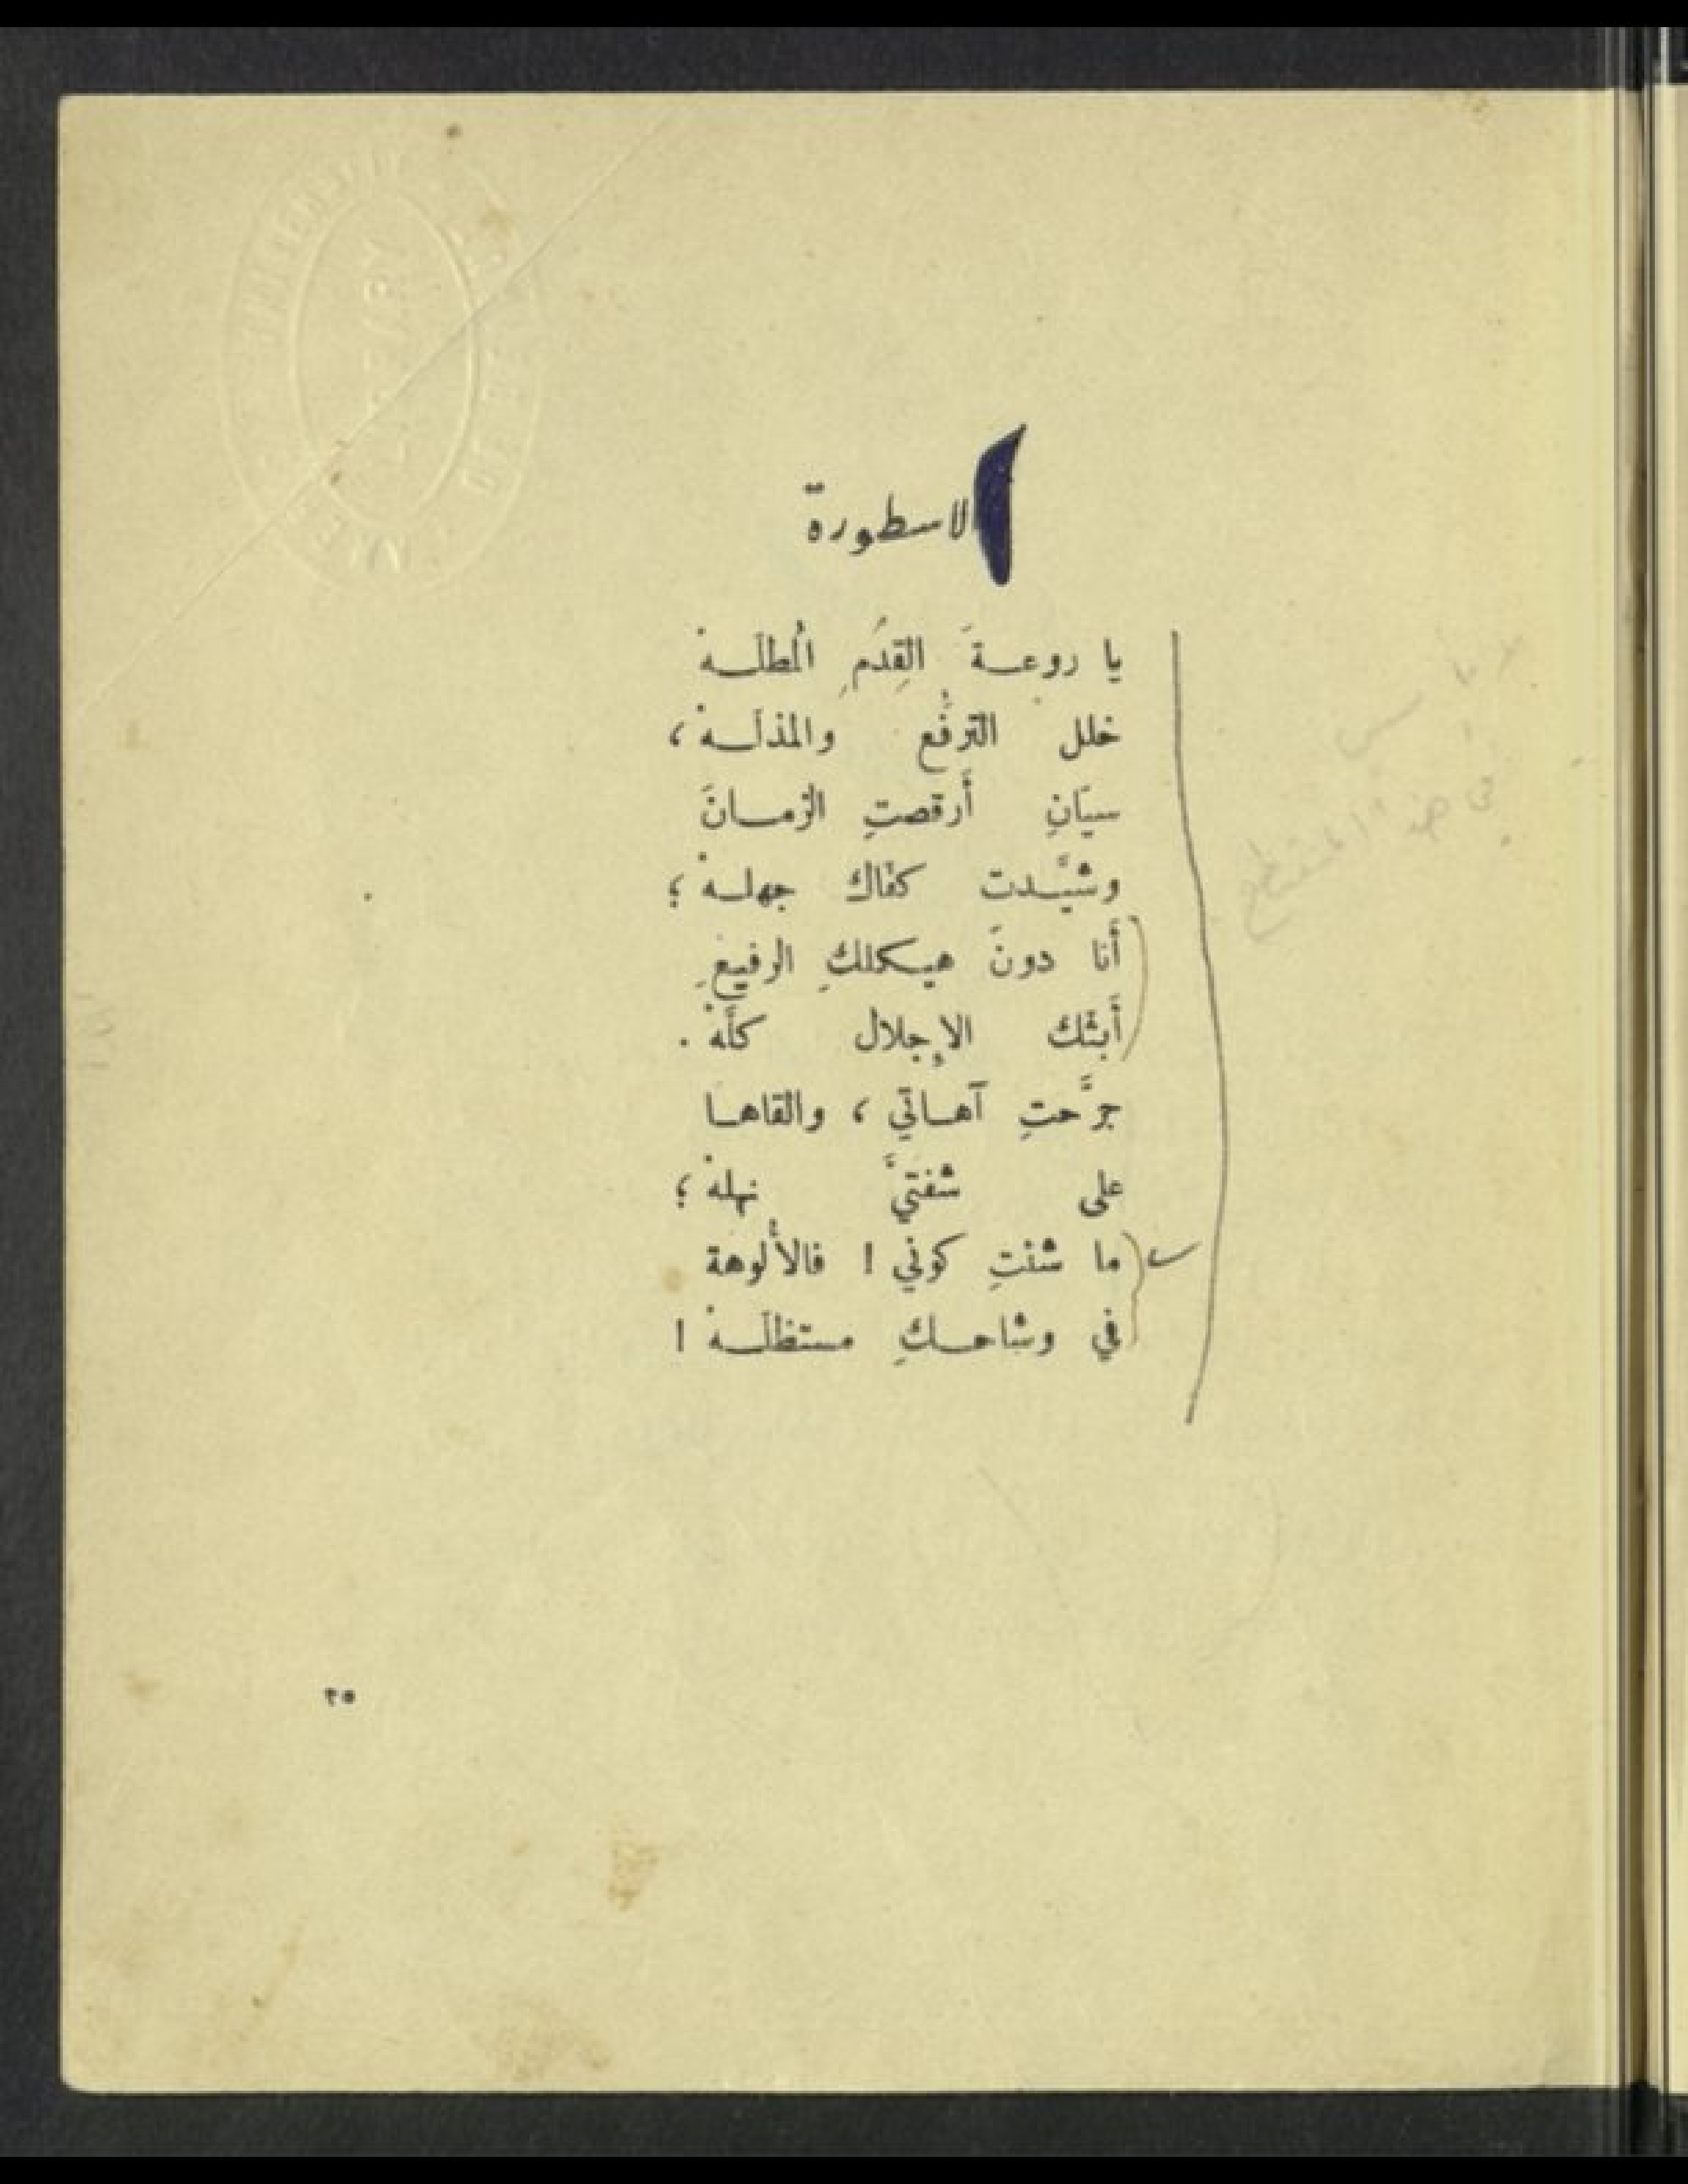 الاسطورة
يا روعةَ القِدَمِ المُطلّهْ
خلل الترفّع والمذلّهْ ،
سيّانِ أَرقصتِ الزمانَ
وشيَّدت كفّاك جهلهْ ؛
أَنا دونَ هيكلكِ الرفيعِ
أَبثّك الإجلال كلَّهْ .
جرَّحتِ آهاتي ، والقاها
على شفتيَّ نهلهْ ؛
ما شئتِ كوني ! فالأُلوهة
في وشاحكِ مستظلّهْ !
لا بأس
في هذا المقطع
٢٥